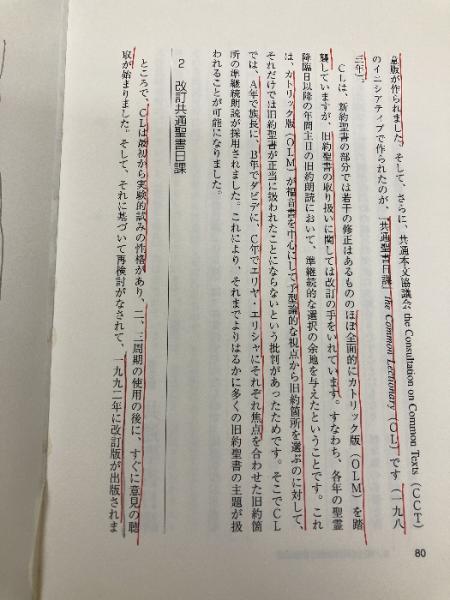 意版が作られました。そして、さらに、共通本文協議会 the Consultation on Common Texts（ＣＣＴ）
のイニシアティブで作られたのが、『共通聖書日課』the Common Lectionary（ＣＬ）です（一九八
三年）。
ＣＬは、新約聖書の部分では若干の修正はあるもののほぼ全面的にカトリック版（ＯＬＭ）を踏
襲していますが、旧約聖書の取り扱いに関しては改訂の手をいれています。すなわち、各年の聖霊
降臨日以降の年間主日の旧約朗読において、準継続的な選択の余地を与えたということです。これ
は、カトリック版（ＯＬＭ）が福音書を中心にして予型論的な視点から旧約箇所を選ぶのに対して、
それだけでは旧約聖書が正当に扱われたことにならないという批判があったためです。そこでＣＬ
では、Ａ年で族長に、Ｂ年でダビデに、Ｃ年でエリヤ・エリシャにそれぞれ焦点を合わせた旧約箇
所の準継続朗読が採用されました。これにより、それまでよりはるかに多くの旧約聖書の主題が扱
われることが可能になりました。
2 改訂共通聖書日課
ところで、ＣＬは最初から実験的試みの性格があり、二、三周期の使用の後に、すぐに意見の聴
取が始まりました。そして、それに基づいて再検討がなされて、一九九二年に改訂版が出版されま
80